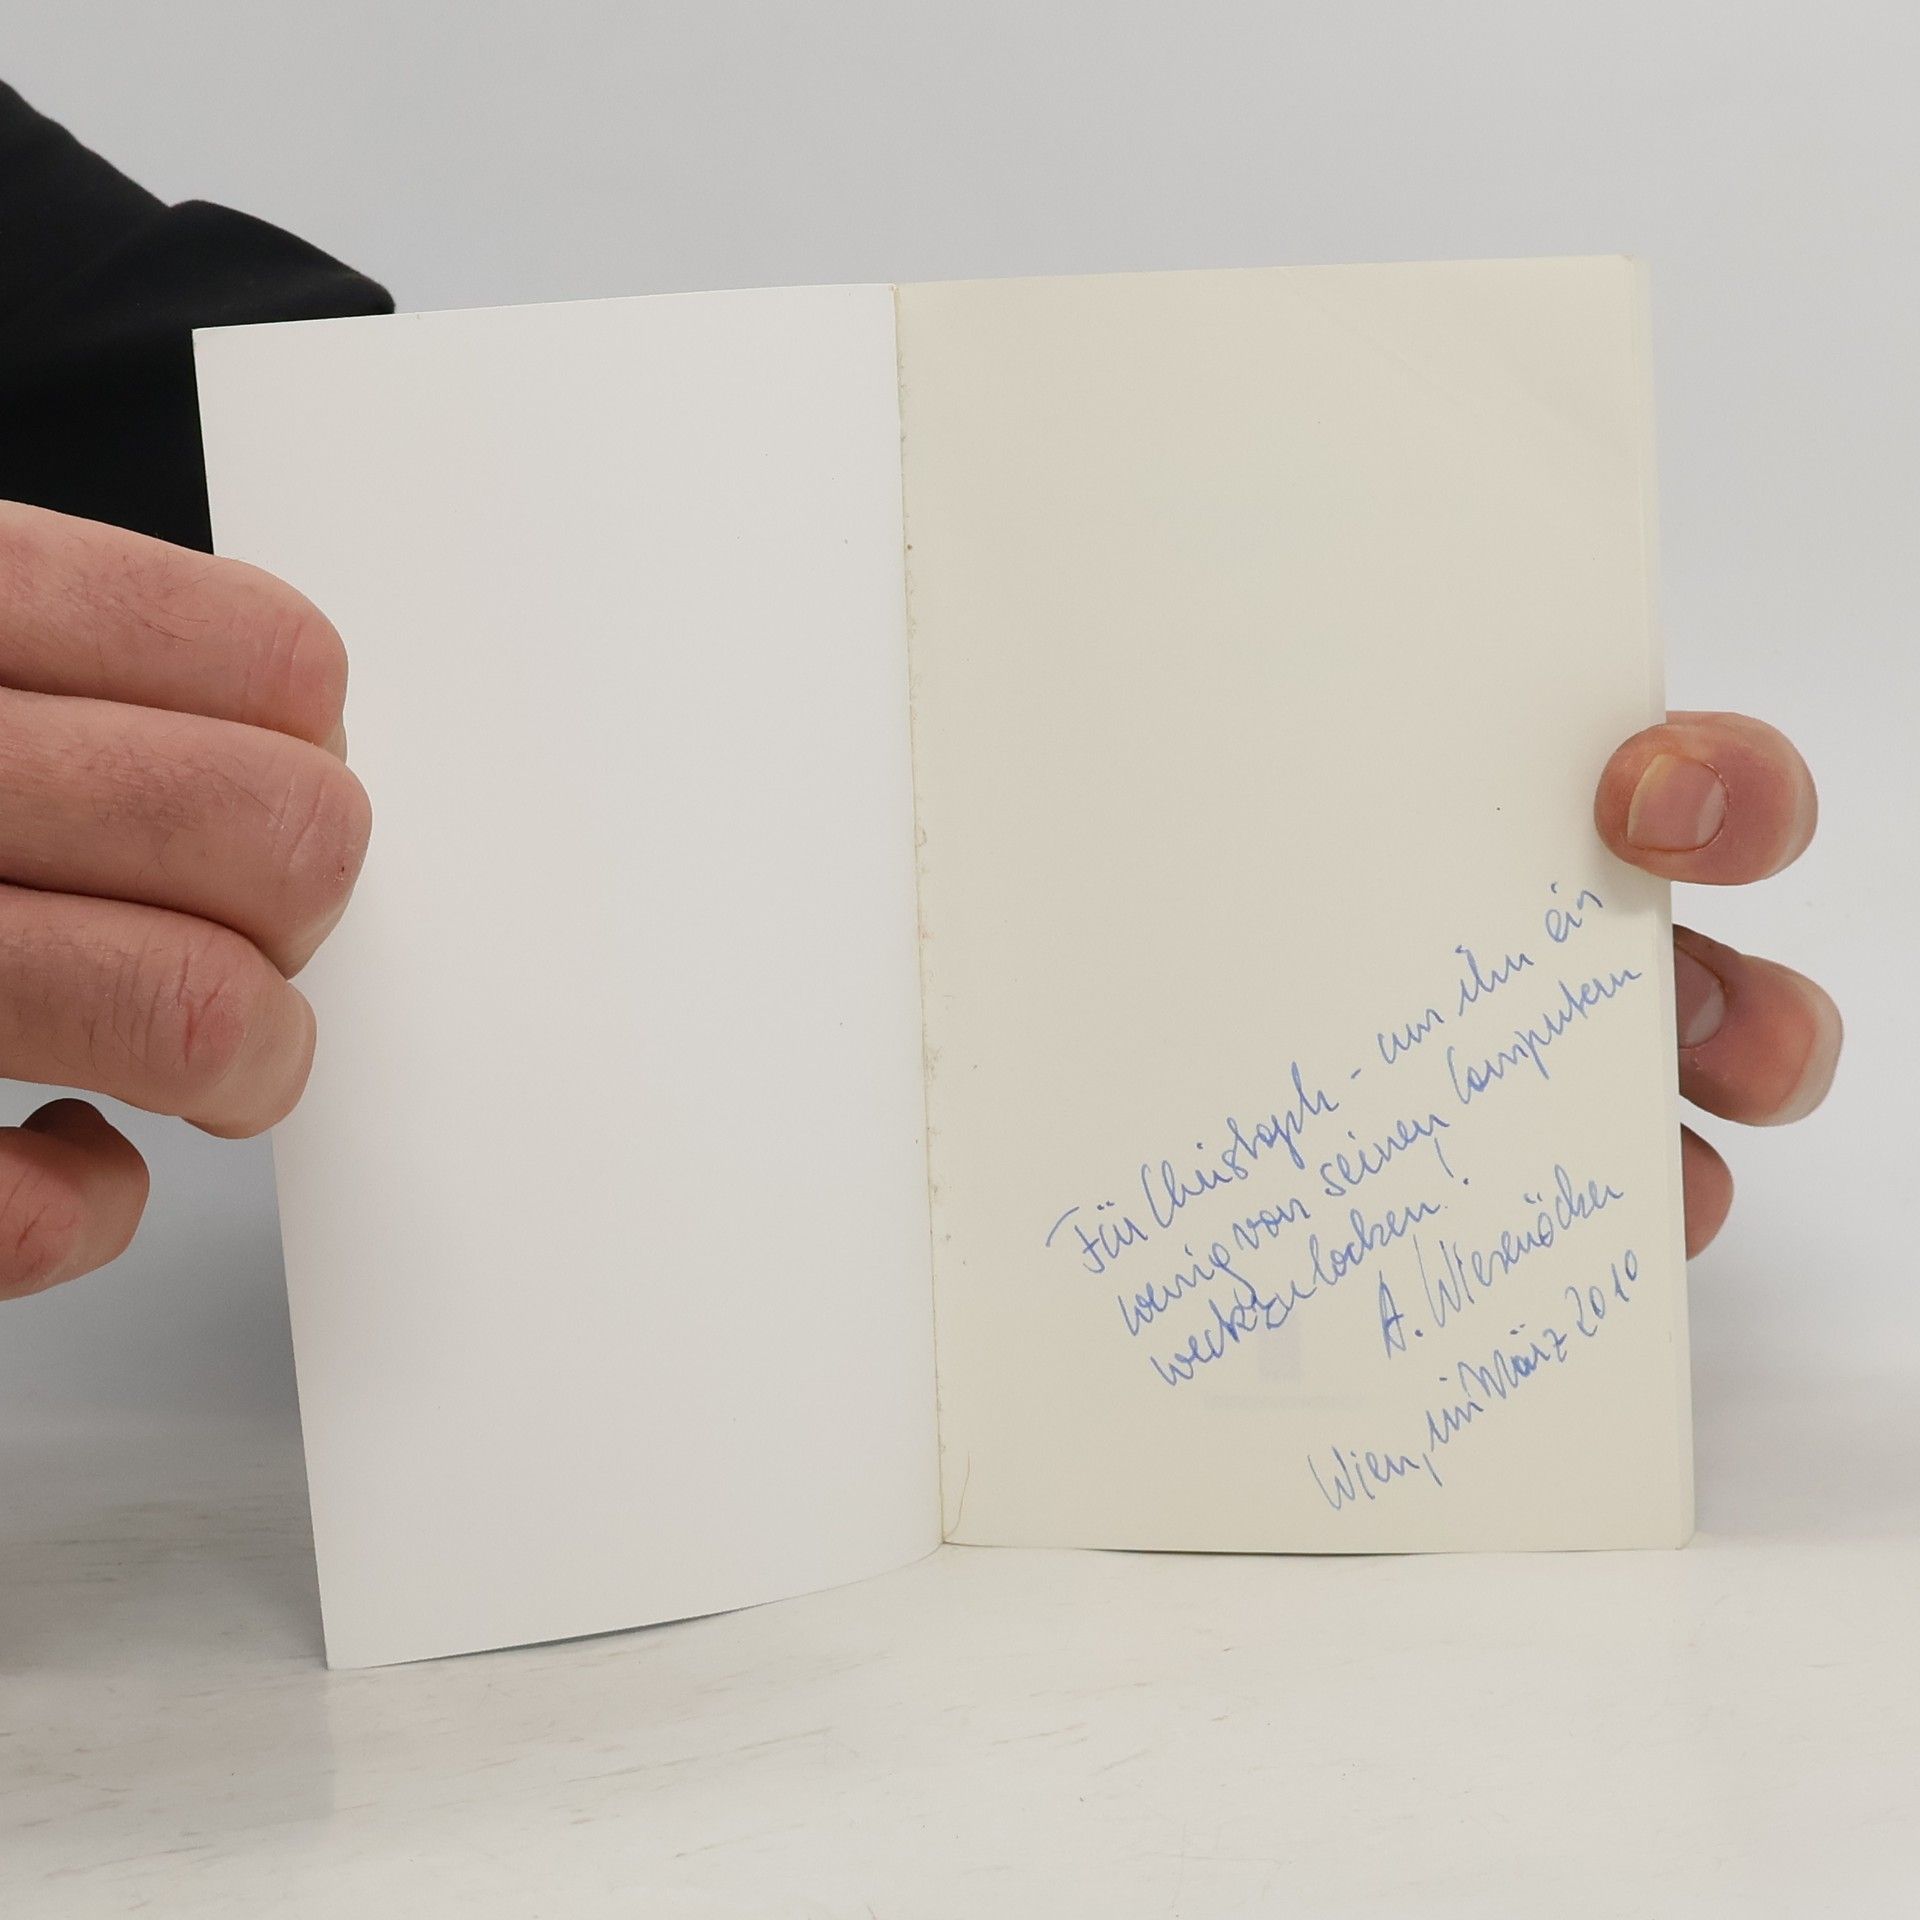 Für Christoph - um ihn ein
wenig von seinen Computern
weckzulocken!
A. Wiesenöcker
Wien, im März 2010